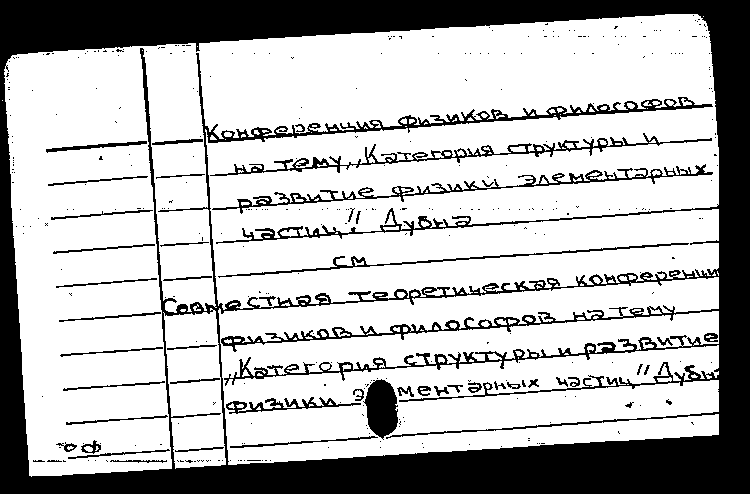 Конференция физиков и философов
на тему „Категория структуры и
развитие физики элементарных
частиц". Дубна
см
Совместная теоретическая конференци
физиков и философов на тему
„Категория структуры и развитие
физики элементарных частиц" Дубна
оф